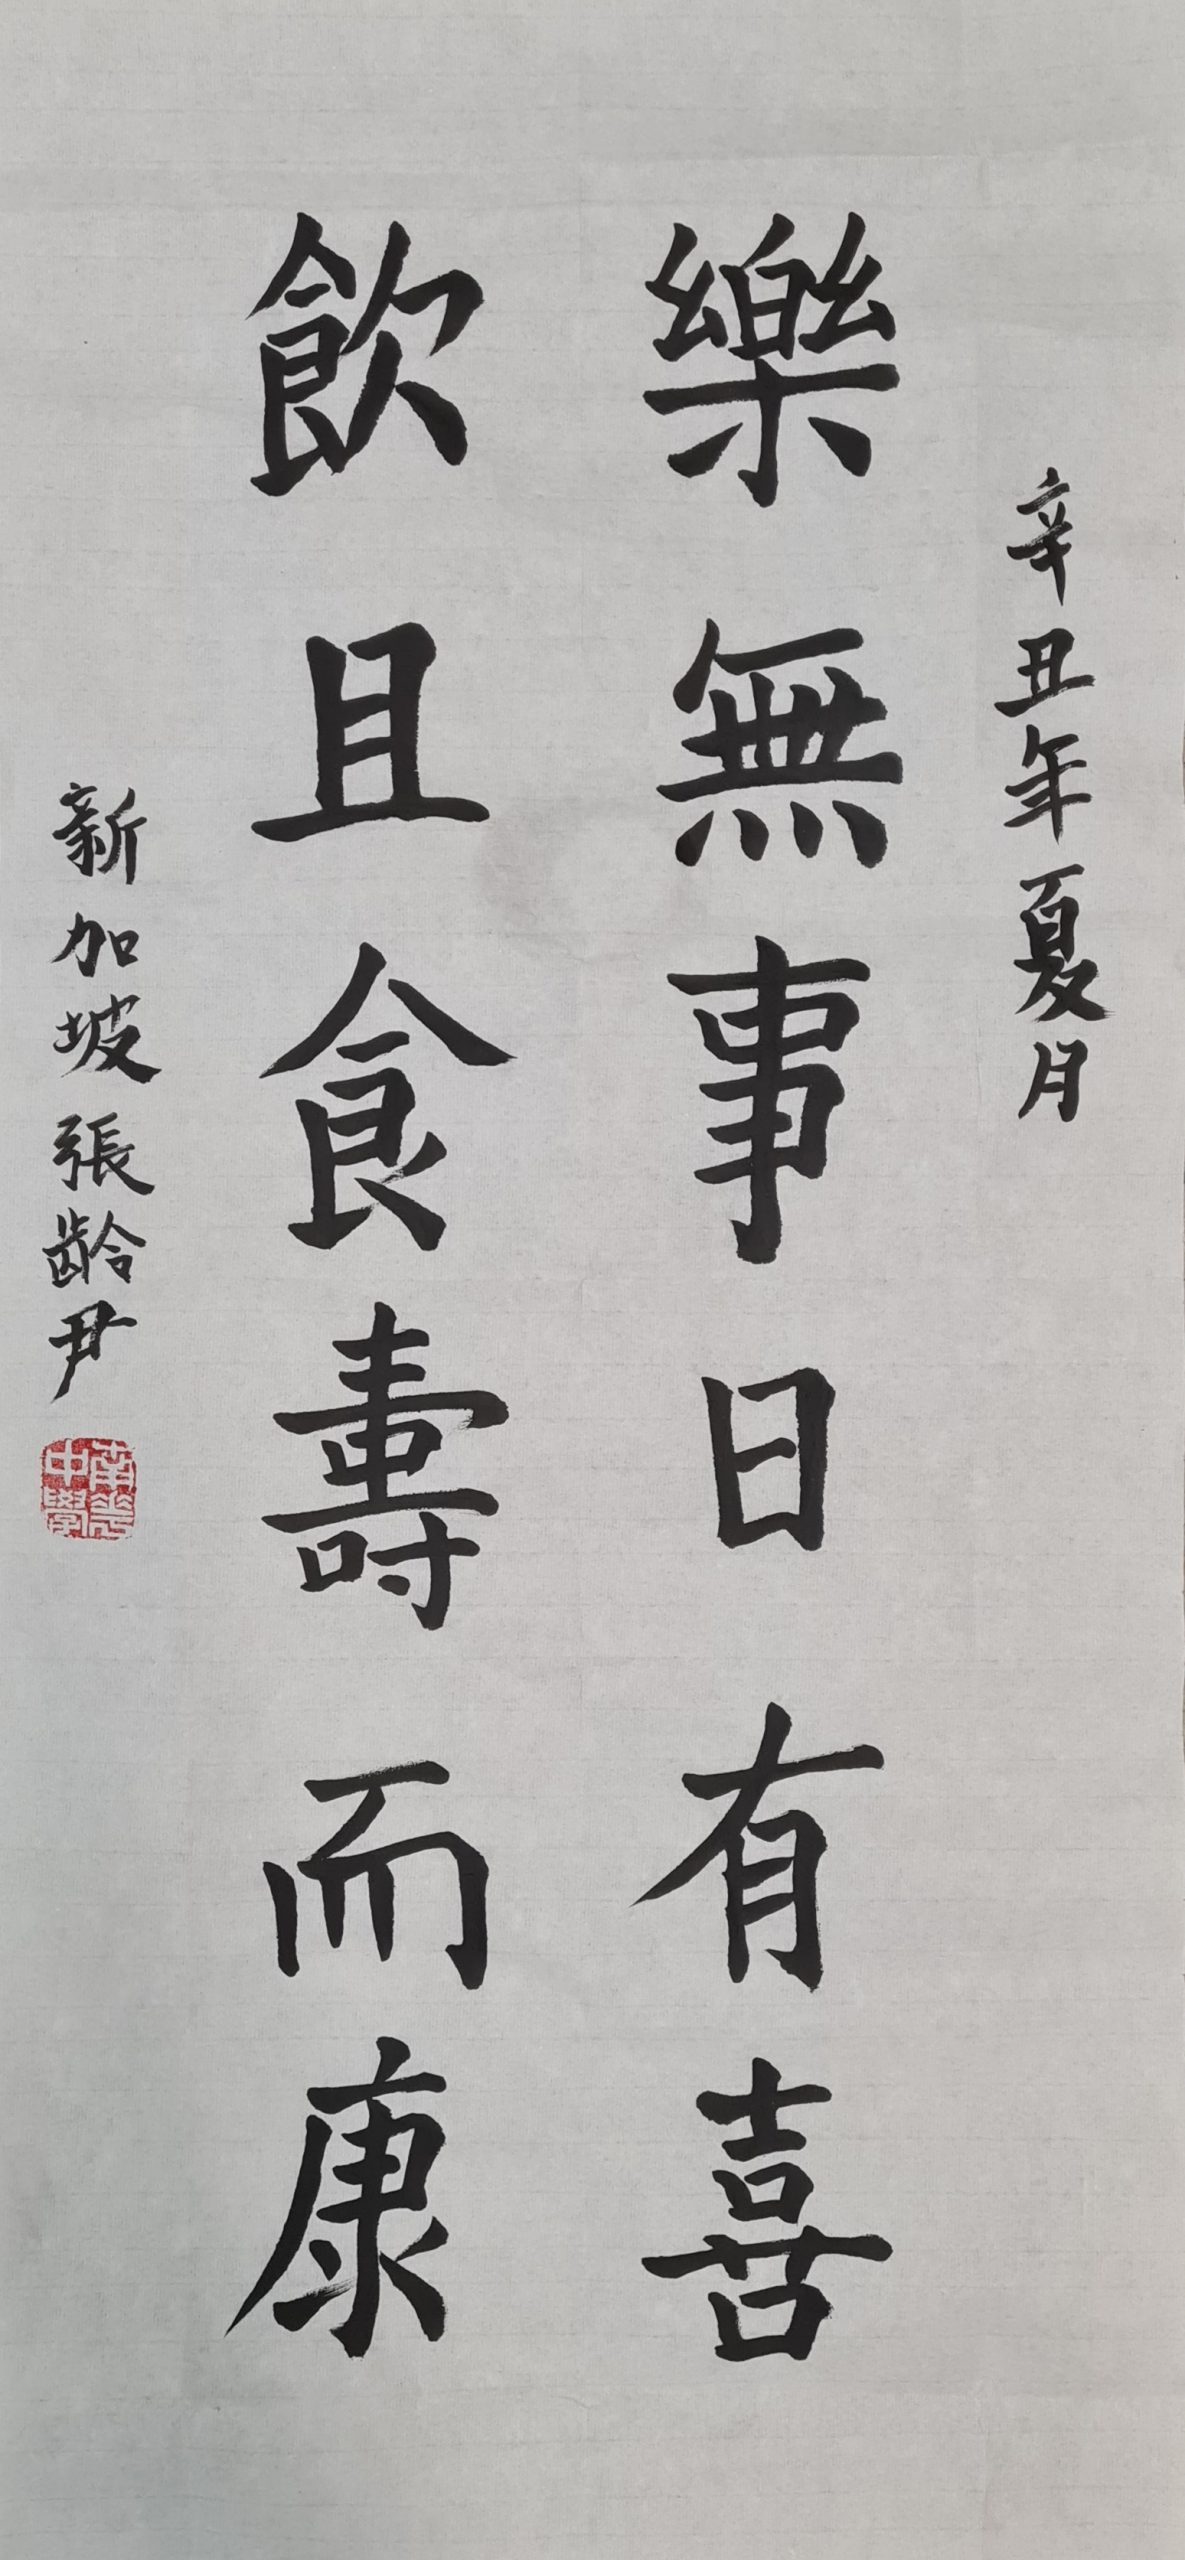 辛丑年夏月
樂無事日有喜
飲且食壽而康
新加坡張齡尹
南華中學